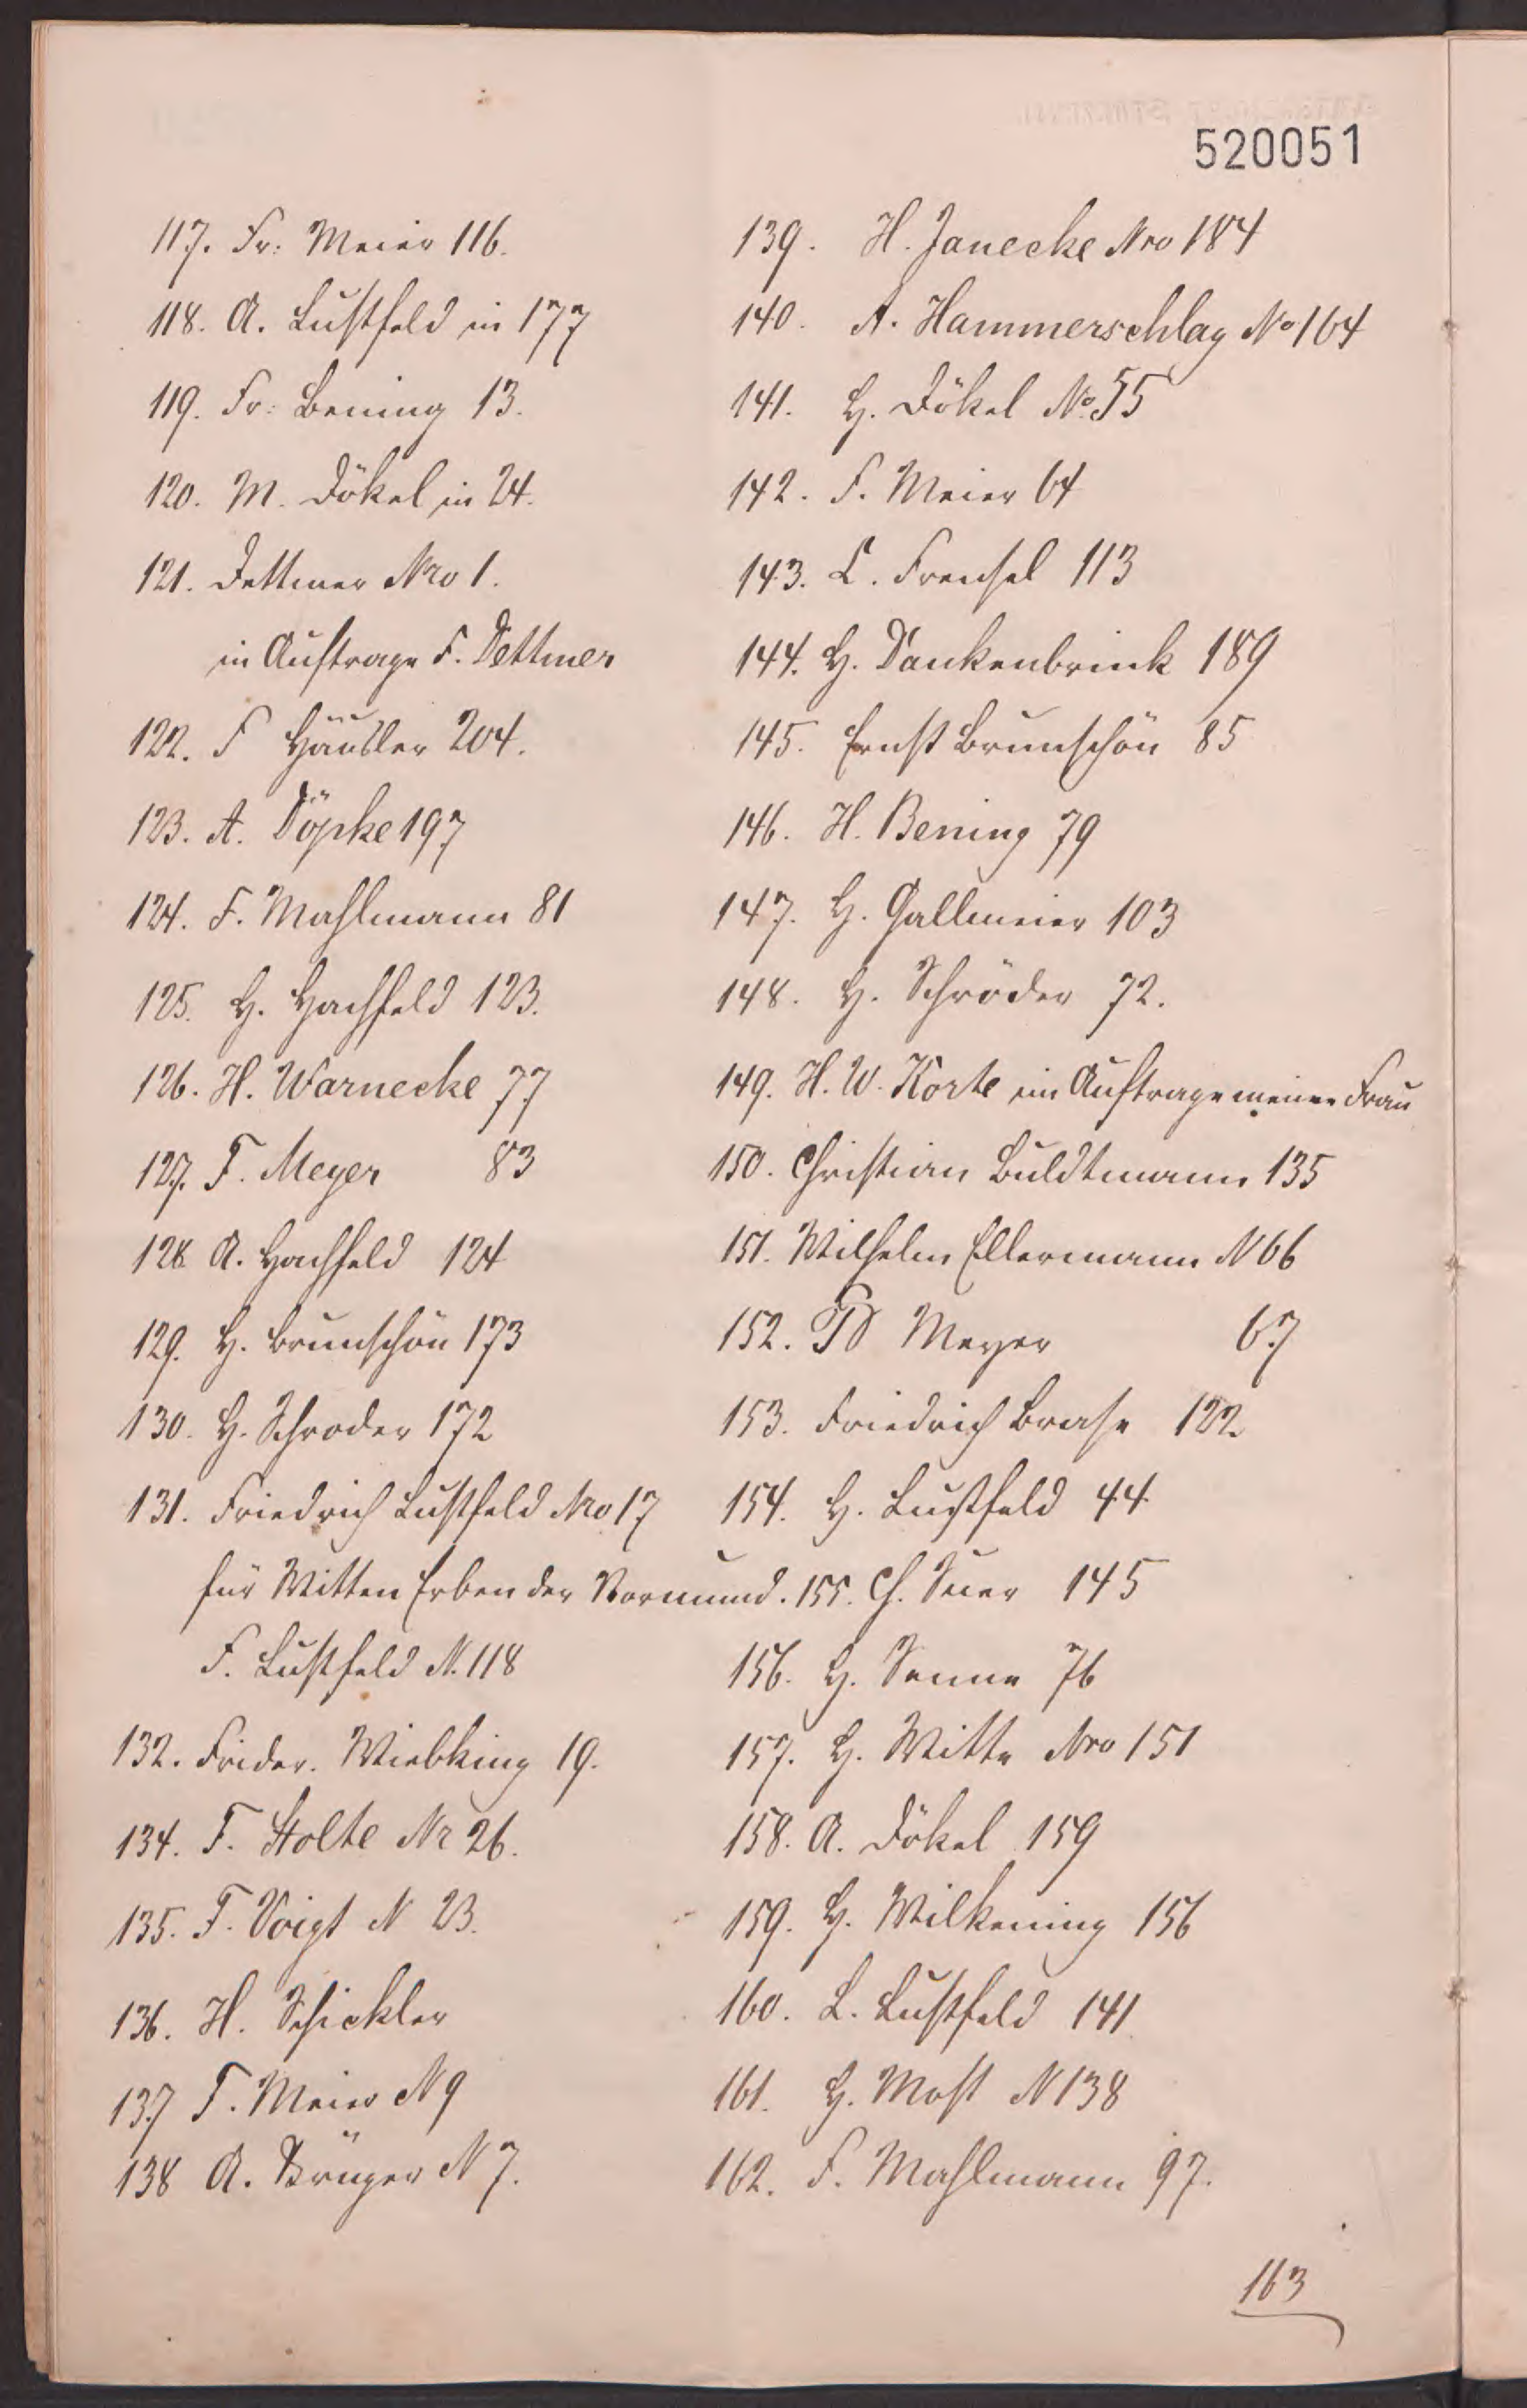 520051
117. Fr. Meier 116.
118. A. Lustfeld in 177
119. Fr. Bening 13.
120. M. Dökel in 24.
121. Dettmer Nro 1.
in Auftrage F. Dettmer
122. F Häusler 204.
123. A. Döpke 197
124. F. Mahlmann 81
125. H. Hachfeld 123.
126. H. Warnecke 77
127. F. Meyer 83
128 A. Hachfeld 124
129. H. Brunschön 173
130. H. Schroder 172
131. Friedrich Lustfeld Nro 17
für Witten Erben der Vormund.
F. Lustfeld N. 118
132. Frider. Wiebking 19.
134. F. Stolte Nr 26.
135. F. Voigt N 23.
136. H. Schickler
137 F. Meier N 9
138 A. Krüger N 7.
139. H. Janecke Nro 184
140. A. Hammerschlag No 164
141. H. Dökel No. 55
142. F. Meier 64
143. L. Frensel 113
144. H. Dankenbrink 189
145. Ernst Brunschön 85
146. H. Bening 79
147. H. Gallmeier 103
148. H. Schröder 72.
149. H. W. Korte im Auftrage meiner Frau
150. Christian Buldtmann 135
151. Wilhelm Ellermann N 66
152. Meyer 67
153. Friedrich Brase 122
154. H. Lustfeld 44
155. Ch. Suer 145
156. H. Senne 76
157. H. Witte Nro 151
158. A. Dökel 159
159. H. Wilkening 156
160. L. Lustfeld 141
161. H. Most N 138
162. F. Mahlmann 97.
163